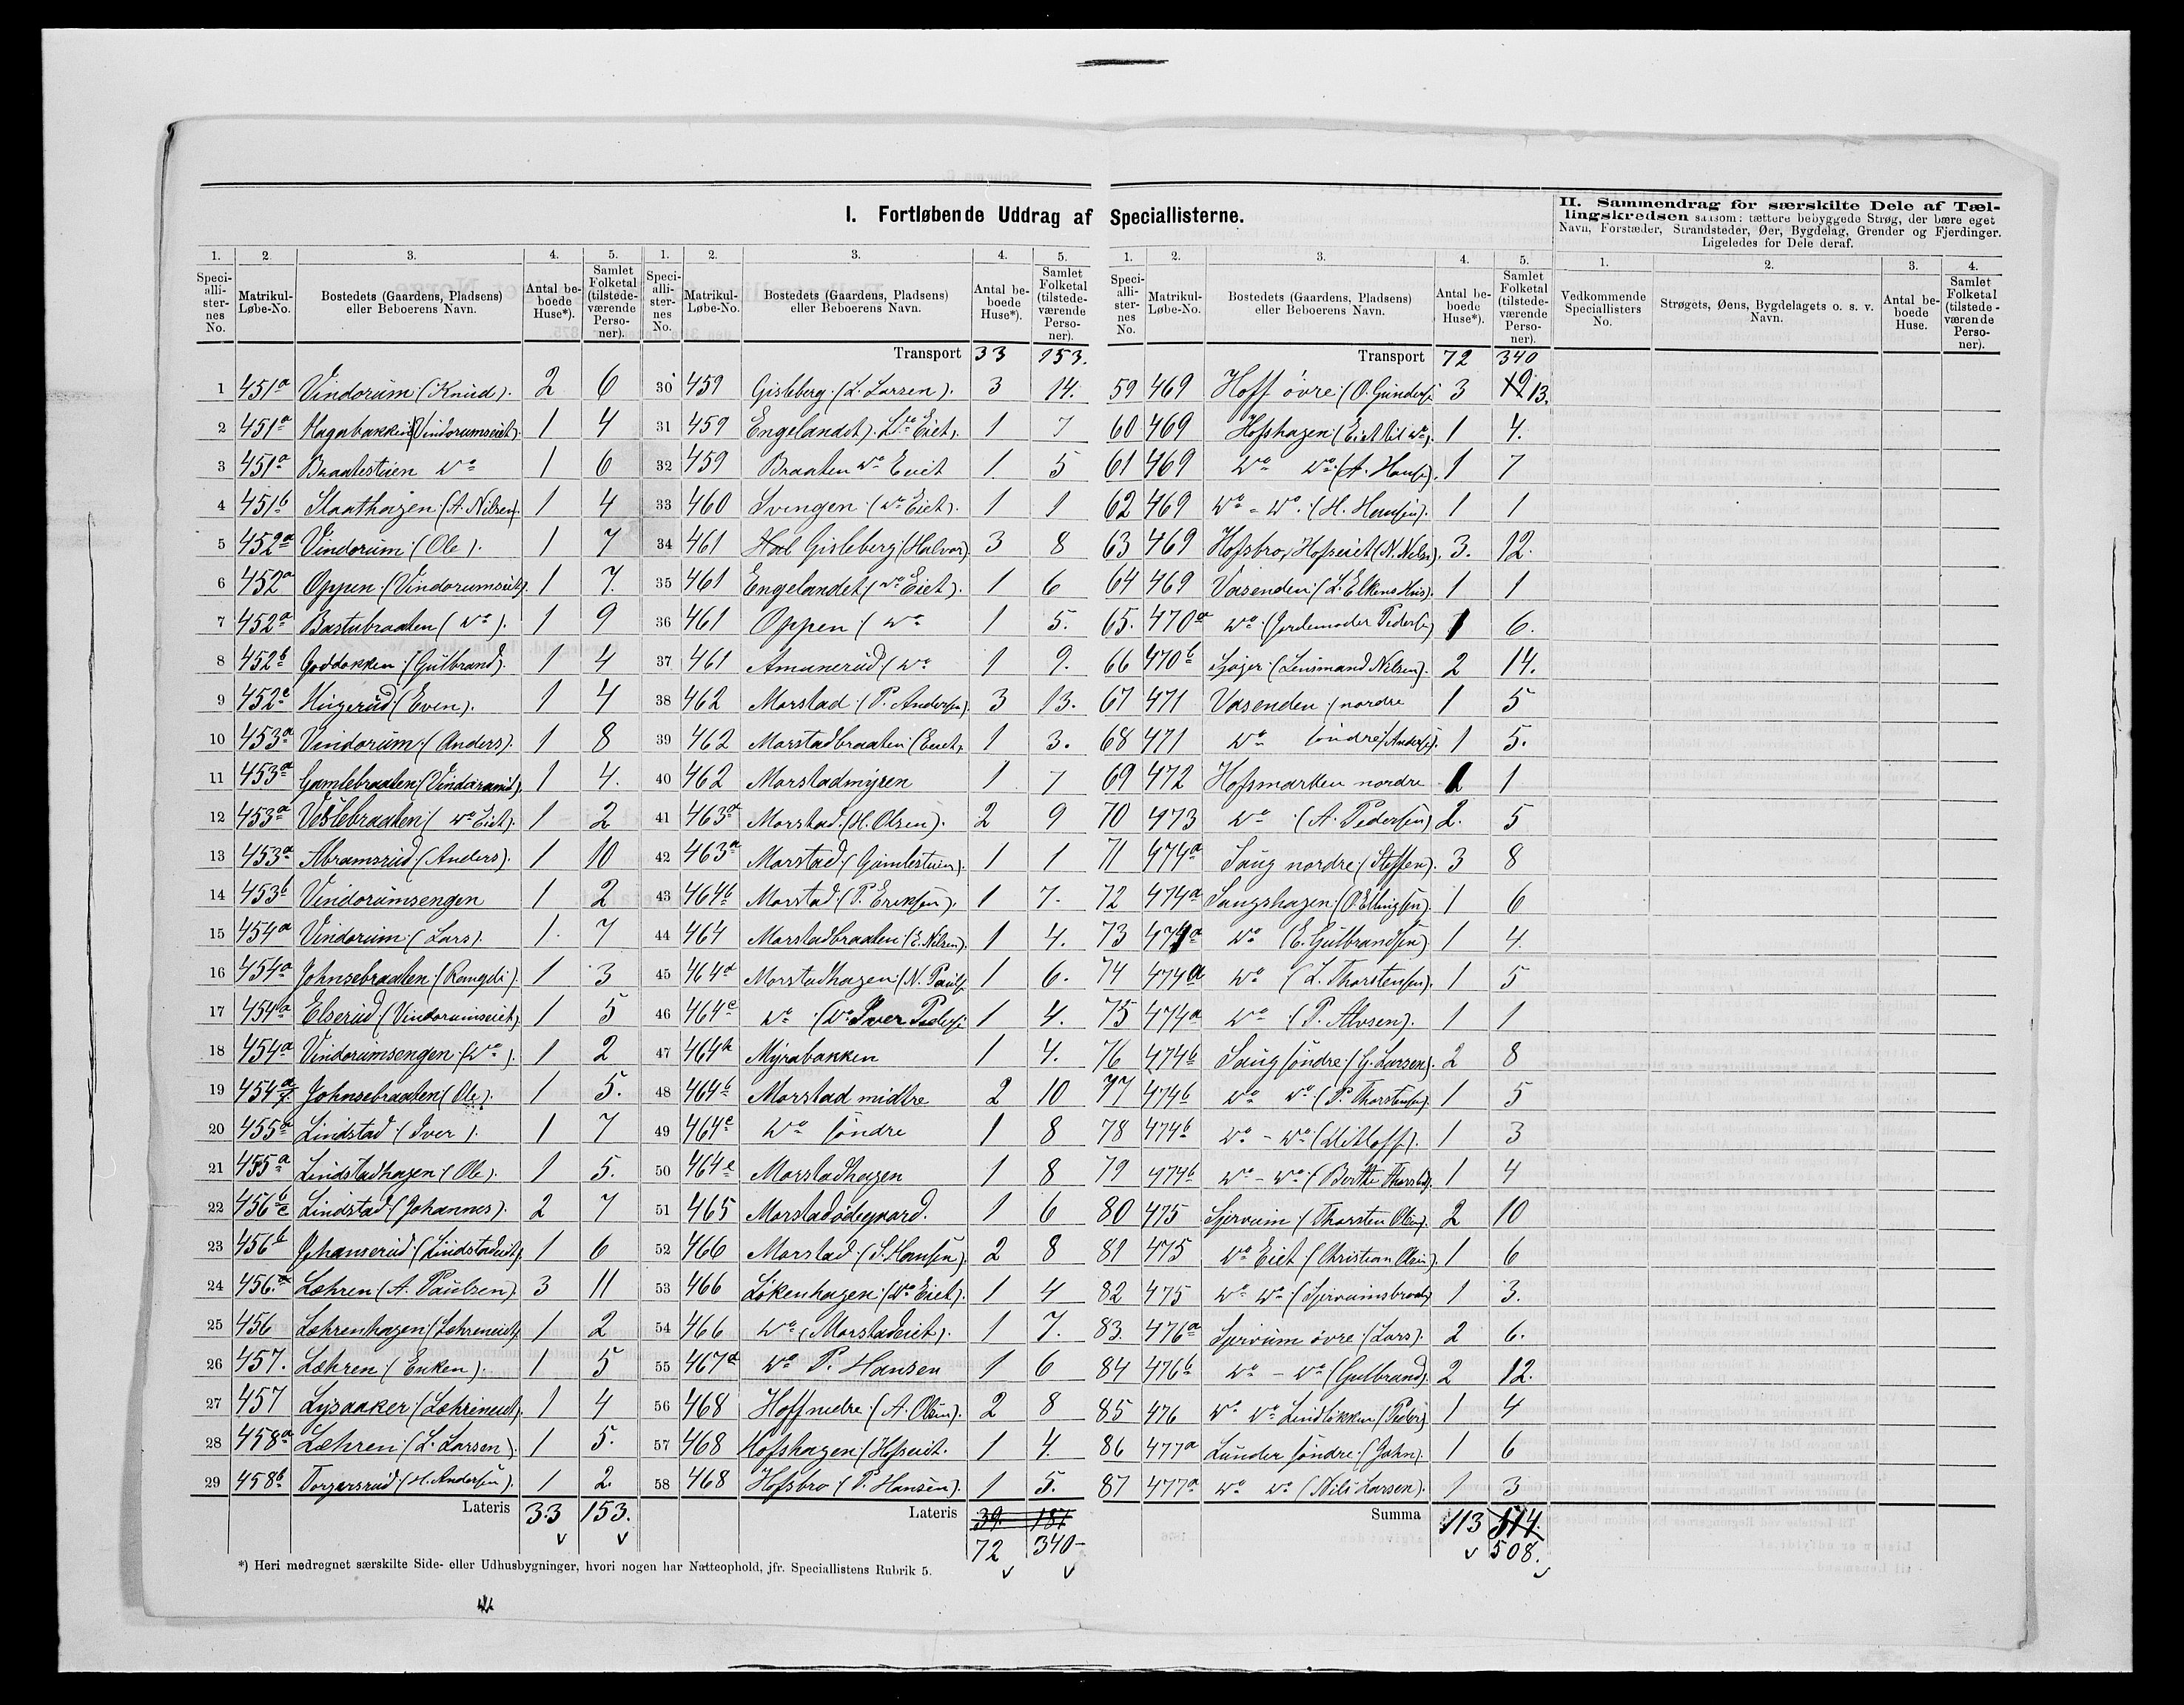 I. Fortløbende Uddrag af Speciallisterne.
II. Sammendrag for særskilte Dele af Tæl-
lingskredsen saasom: tættere bebyggede Strøg, der bære eget
Navn, Forstæder, Strandsteder, Øer, Bygdelag, Grender og Fjerdinger.
Ligeledes for Dele deraf.
1. 2. 3. 4. 5.
Speci-alli-ster-nes No. Matrikul-Løbe-No. Bostedets (Gaardens, Pladsens) eller Beboerens Navn. Antal be-boede Huse*). Samlet Folketal (tilstede-værende Perso-ner).
1 451a Vindorum (Knud). 2 6
2 451a Hagabakken (Vindorumseiet). 1 4
3 451a Braatestuen Do 1 6
4 451b Slaathagen (A. Nilsen). 1 4
5 452a Vindorum (Ole). 1 7
6 452a Oppen (Vindorumseiet). 1 7.
7 452a Bastubraaten (Do). 1 9
8 452b Goddokken (Gulbrand). 1 4
9 452c Hugerud (Even). 1 4
10 453a Vindorum (Anders). 1 8
11 453a Gamlebraaten 1 4.
12 453a Veslebraaten (Do Eiet). 1 2
13 453a Abramsrud (Anders). 1 10
14 453b Vindorumsengen 1 2
15 454a Vindorum (Lars). 1. 7
16 454a Johnsebraaten (Rangdi). 1 3
17 454a Elserud (Vindorumseiet). 1 5
18 454a Vindorumsengen (Do). 1 2
19 454a Johnsebraaten (Ole). 1 5.
20 455a Lindstad (Iver). 1 7
21 455a Lindstadhagen (Ole). 1 5.
22 456 Lindstad (Johannes). 2 7
23 456b Johanserud (Lindstadeiet). 1 6
24 456. Løhren (A. Paulsen). 3 11
25 456 Løhrenhagen (Løhreneiet). 1 2
26 457. Løhren (Enken). 1 5
27 457 Lysaaker (Løhreneiet). 1 4
28 458a Løhren (L. Larsen). 1 5.
29 458b Torgersrud (H. Andersen). 1 2.
Lateris 33 153.
1. 2. 3. 4. 5.
Speci-alli-ster-nes No. Matrikul-Løbe-No. Bostedets (Gaardens, Pladsens) eller Beboerens Navn. Antal be-boede Huse*). Samlet Folketal (tilstede-værende Perso-ner).
Transport 33 153.
30 459 Gisleberg (L. Larsen). 3 14.
31 459 Engelandet Eiet. 1 7
32 459 Braaten Do Eiet 1 5
33 460 Svingen (Do Eiet). 1 1
34 461 Gisleberg (Halvor) 3 8
35 461 Engelandet (Do Eiet). 1 6
36 461 Oppen (Do 1 5.
37 461 Amunerud (Do 1 9.
38 462 Morstad (P. Andersen). 3 13.
39 462 Morstadbraaten (Eiet). 1 3.
40 462 Morstadmyren 1 7
41 463a Morstad (H. Olsen). 2 9
42 463a Morstad (Gamlestuen). 1 1
43 464b Morstad (P. Eriksen). 1 7.
44 464 Morstadbraaten (E. Nilsen). 1 4.
45 464d Morstadhagen (N. Pauls 1 6.
46 464e Do (Do Iver Peders 1 4.
47 464h Myrabakken 1 4.
48 464b Morstad midtre 2 10
49 464c Do søndre 1 8
50 464e Morstadhagen 1 8
51 465 Morstadødegaard. 1 6
52 466 Morstad (S. Hansen). 2 8
53 466 Løkenhagen (Do Eiet). 1 4
54 466 Do (Morstadeiet). 1 7.
55 467a Do P. Hansen 1 6
56 468 Hoff nedre (A. Olsen). 2 8
57 468 Hofshagen (Hofseiet. 1 4.
58 468 Hofsbro (P. Hansen). 1 5.
Lateris 39. 187
72 340
1. 2. 3. 4. 5.
Speci-alli-ster-nes No. Matrikul-Løbe-No. Bostedets (Gaardens, Pladsens) eller Beboerens Navn. Antal be-boede Huse*). Samlet Folketal (tilstede-værende Perso-ner).
Transport 72 340
59 469 Hoff øvre (O. Gunders 3 13.
60 469 Hofshagen (Eiet til Do). 1 4.
61 469 Do Do (A. Hans). 1 7
62 469 Do - Do (H. Hansen). 1 1
63 469 Hofsbro, Hofseiet (N. Nils). 3. 12.
64 469 Vasenden (L. Elkens Hus) 1 1
65. 470a Do (Jordemoder Peders) 1 6.
66 470b (Lensmand Nilsen). 2 14.
67 471 Vasenden (nordre 1 5
68 471 Do søndre (Anders). 1 5.
69 472 Hofsmarken nordre 1 1
70 473 Do (A. Pedersen) 2. 5
71 474a Saug nordre (Steffen). 3 8
72 474a Saugshagen (O. Ellingsen). 1 6
73 474a Do (E. Gulbrandsen) 1 4.
74 474a Do (L. Thorstensen). 1 5
75 474a Do (P. Alvsen). 1 1
76 474b Saug søndre (G. Larsen). 2 8
77 474b Do Do (P. Thorstensen). 1 5
78 474b Do - Do 1 3
79 474b Do - Do (Berthe Thorsted). 1 4
80 475 Sjervum (Thorsten Olsen). 2 10
81 475 Do Eiet (Christian Olsen). 1 6
82 475 Do Do (Sjervumsbraaten) 1 3.
83. 476a Sjervum øvre (Lars). 2 6.
84 476b Do - Do (Gulbrand). 2 12.
85 476 Do Do Lindløkken (Peder) 1 4
86 477a Lunder søndre (John). 1 6
87 477a Do Do (Nils Larsen). 1 3
Summa 113 514.
508.
1. 2. 3. 4.
Vedkommende Speciallisters No. Strøgets, Øens, Bygdelagets o. s. v. Navn. Antal be-boede Huse. Samlet Folketal (tilstede-værende Perso-ner).
*) Heri medregnet særskilte Side- eller Udhusbygninger, hvori nogen har Natteophold, jfr. Speciallistens Rubrik 5.